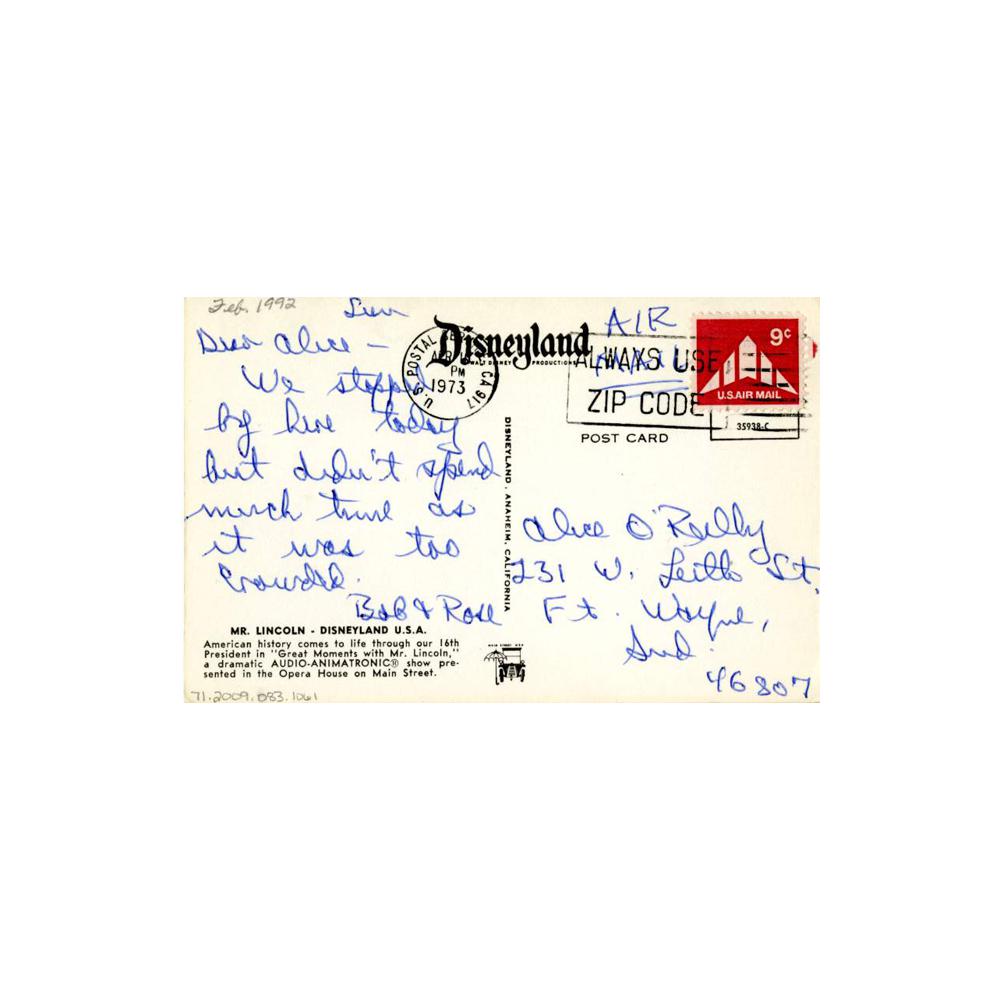 Feb. 1992
Sun
Dear Alice -
We stopped
by here today
but didn't spend
much time as
it was too
crowded.
Bob & Rose
MR. LINCOLN - DISNEYLAND U.S.A.
American history comes to life through our 16th
President in "Great Moments with Mr. Lincoln,"
a dramatic AUDIO-ANIMATRONIC® show pre-
sented in the Opera House on Main Street.
71.2009.083.1061
Disneyland
WALT DISNEY PRODUCTIONS
U.S. POSTAL CA 917
APR
PM
1973
DISNEYLAND, ANAHEIM, CALIFORNIA
AIR
MAIL
ALWAYS USE
ZIP CODE
9¢
U.S. AIR MAIL
35938-C
POST CARD
Alice O'Reilly
231 W. Leith St.
Ft. Wayne,
Ind.
46807